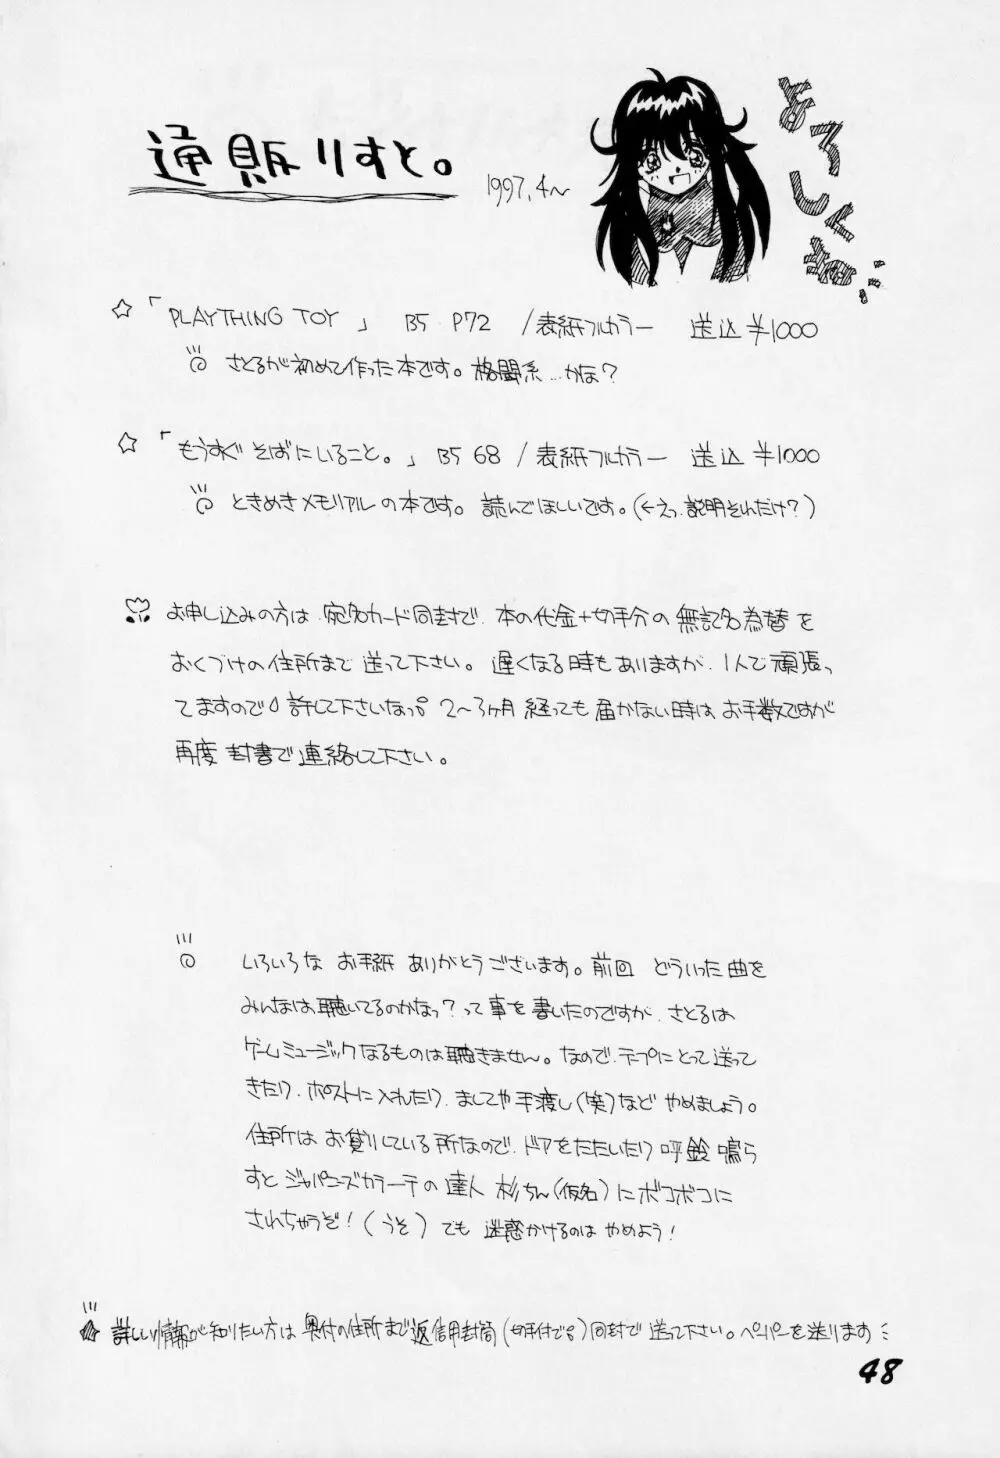 通販りすと。
1997.4～
よろしくね
☆「PLAYTHING TOY」 B5 P72 /表紙フルカラー 送込¥1000
さとるが初めて作った本です。格闘系…かな？
☆「もうすぐそばにいること。」B5 68 /表紙フルカラー 送込¥1000
ときめきメモリアルの本です。読んでほしいです。(←えっ.説明それだけ？)
お申し込みの方は、宛名カード同封で、本の代金+切手分の無記名為替を
おくづけの住所まで送って下さい。遅くなる時もありますが、1人で頑張っ
てますので許して下さいなっ。2～3ヶ月経っても届かない時は、お手数ですが
再度封書で連絡して下さい。
いろいろなお手紙ありがとうございます。前回どういった曲を
みんなは聴いてるのかなっ？って事を書いたのですが、さとるは
ゲームミュージックなるものは聴きません。なので、テープにとって送って
きたり、ポストに入れたり、ましてや手渡し(笑)などやめましょう。
住所はお貸りしている所なので、ドアをたたいたり呼鈴鳴ら
すとジャパニーズカラーテの達人杉ちん(仮名)にボコボコに
されちゃうぞ！(うそ)でも迷惑かけるのはやめよう！
詳しい情報が知りたい方は奥付の住所まで返信用封筒(切手付でね)同封で送って下さい。ペーパーを送ります
48